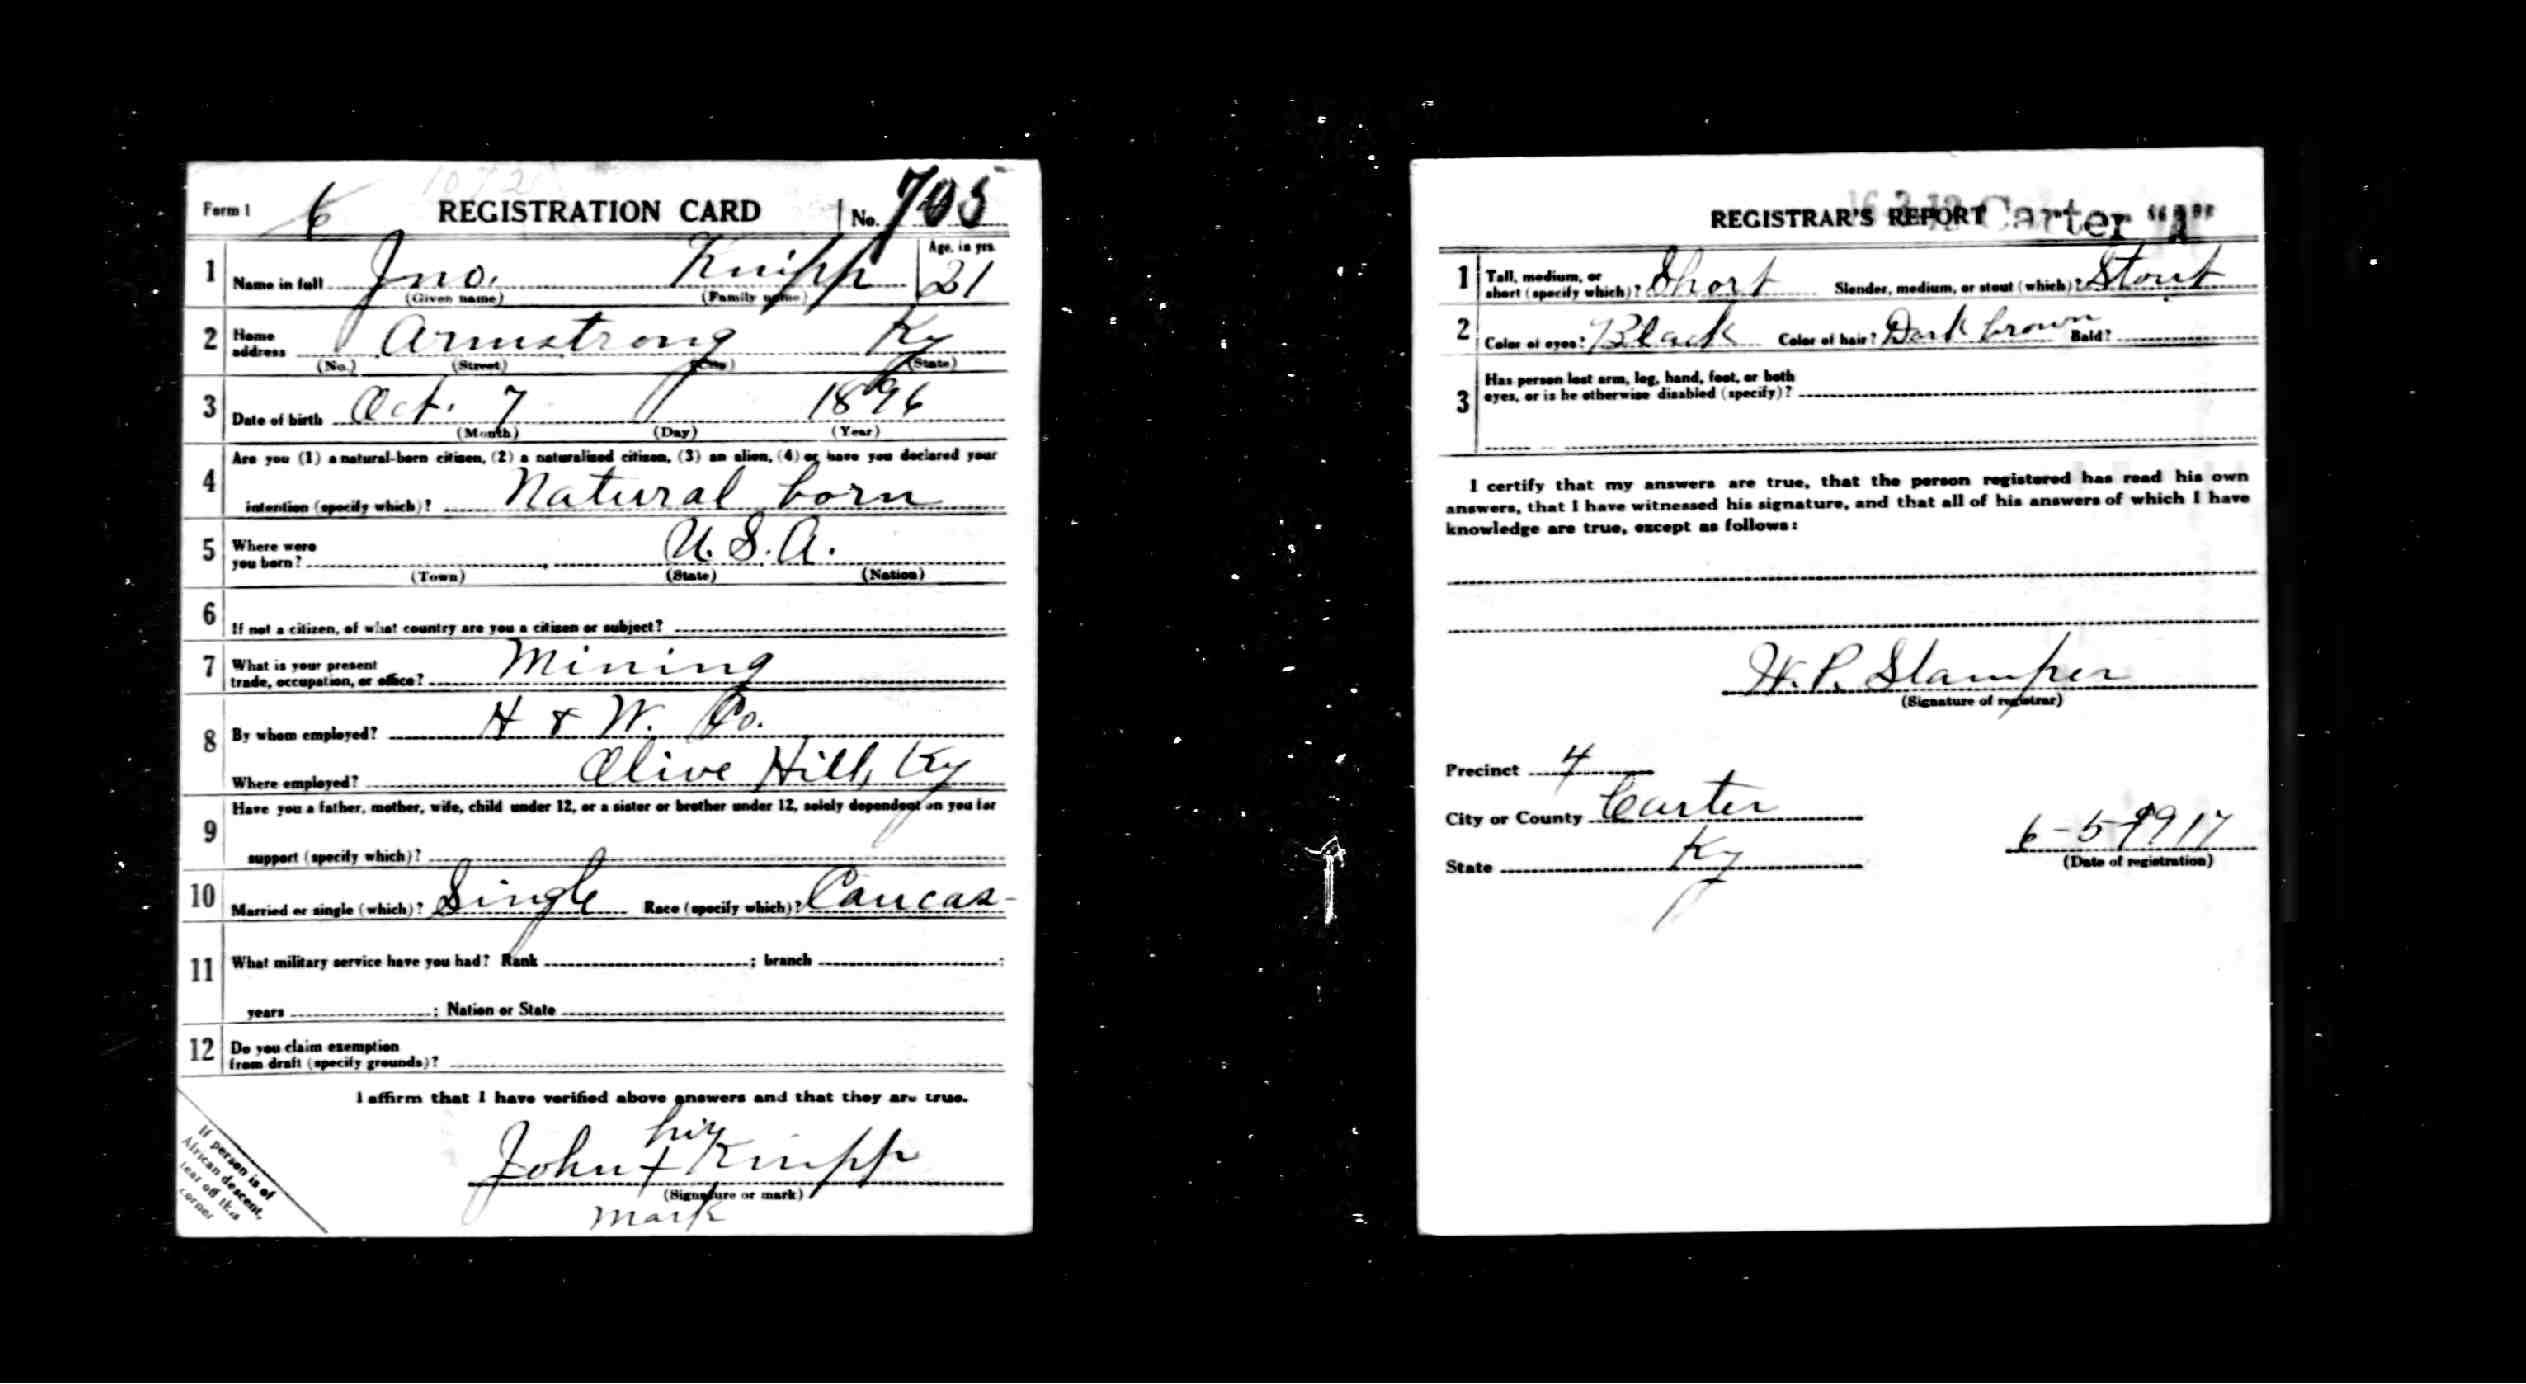 Form 1 6 REGISTRATION CARD No. 705
1 Name in full Jno. Knipp Age, in yrs. 21
(Given name) (Family name)
2 Home address Armstrong Ky
(No.) (Street) (City) (State)
3 Date of birth Oct. 7 1896
(Month) (Day) (Year)
4 Are you (1) a natural-born citizen, (2) a naturalized citizen, (3) an alien, (4) or have you declared your
intention (specify which)? Natural born
5 Where were you born? U.S.A.
(Town) (State) (Nation)
6 If not a citizen, of what country are you a citizen or subject?
7 What is your present trade, occupation, or office? Mining
8 By whom employed? H & W. Co.
Where employed? Olive Hill, Ky
9 Have you a father, mother, wife, child under 12, or a sister or brother under 12, solely dependent on you for
support (specify which)?
10 Married or single (which)? Single Race (specify which)? Caucas-
11 What military service have you had? Rank ; branch ;
years ; Nation or State
12 Do you claim exemption
from draft (specify grounds)?
I affirm that I have verified above answers and that they are true.
his
John + Knipp
(Signature or mark)
mark
If person is of
African descent,
tear off this
corner
REGISTRAR'S REPORT Carter "A"
1 Tall, medium, or
short (specify which)? Short Slender, medium, or stout (which)? Stout
2 Color of eyes? Black Color of hair? Dark brown Bald?
3 Has person lost arm, leg, hand, foot, or both
eyes, or is he otherwise disabled (specify)?
I certify that my answers are true, that the person registered has read his own
answers, that I have witnessed his signature, and that all of his answers of which I have
knowledge are true, except as follows:
H. P. Stamper
(Signature of registrar)
Precinct 4
City or County Carter
State Ky
6-5-1917
(Date of registration)